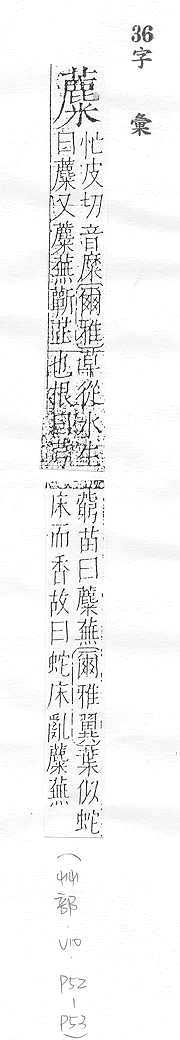 36
字彙
蘪
忙皮切音糜爾雅草從水生
曰蘪又蘪蕪蘄茝也根曰芎
窮苗曰蘪蕪爾雅翼葉似蛇
床而香故曰蛇床亂蘪蕪
(艸部. V10. P52-P53)